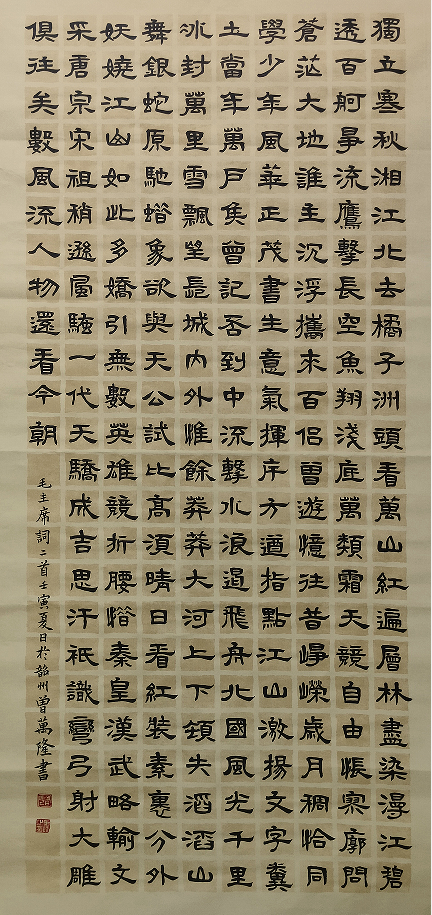 獨立寒秋湘江北去橘子洲頭看萬山紅遍層林盡染漫江碧
透百舸爭流鷹擊長空魚翔淺底萬類霜天競自由悵寥廓問
蒼茫大地誰主沉浮攜來百侶曾遊憶往昔崢嶸歲月稠恰同
學少年風華正茂書生意氣揮斥方遒指點江山激揚文字糞
土當年萬戶侯曾記否到中流擊水浪遏飛舟北國風光千里
冰封萬里雪飄望長城內外惟餘莽莽大河上下頓失滔滔山
舞銀蛇原馳蠟象欲與天公試比高須晴日看紅裝素裹分外
妖嬈江山如此多嬌引無數英雄競折腰惜秦皇漢武略輸文
采唐宗宋祖稍遜風騷一代天驕成吉思汗衹識彎弓射大雕
俱往矣數風流人物還看今朝
毛主席詞二首壬寅夏日於韶州曾萬隆書